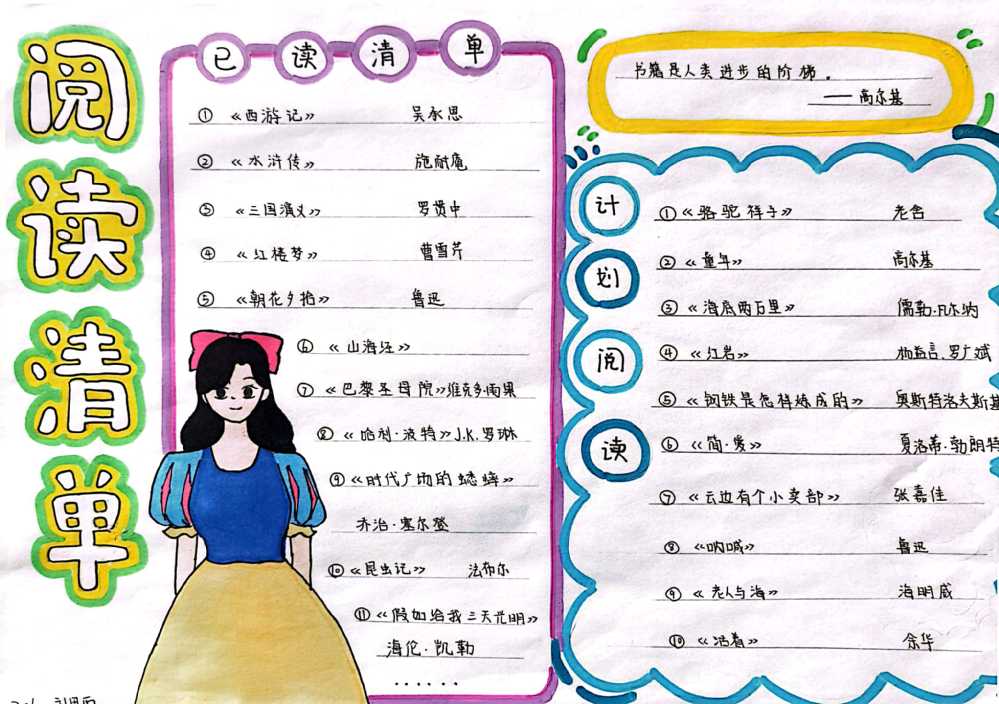 阅读清单
已读清单
① 《西游记》 吴承恩
② 《水浒传》 施耐庵
③ 《三国演义》 罗贯中
④ 《红楼梦》 曹雪芹
⑤ 《朝花夕拾》 鲁迅
⑥ 《山海经》
⑦ 《巴黎圣母院》维克多·雨果
⑧ 《哈利·波特》J.K.罗琳
⑨ 《时代广场的蟋蟀》
乔治·塞尔登
⑩ 《昆虫记》 法布尔
⑪ 《假如给我三天光明》
海伦·凯勒
......
书籍是人类进步的阶梯。
——高尔基
计划阅读
① 《骆驼祥子》 老舍
② 《童年》 高尔基
③ 《海底两万里》 儒勒·凡尔纳
④ 《红岩》 杨益言、罗广斌
⑤ 《钢铁是怎样炼成的》 奥斯特洛夫斯基
⑥ 《简·爱》 夏洛蒂·勃朗特
⑦ 《云边有个小卖部》 张嘉佳
⑧ 《呐喊》 鲁迅
⑨ 《老人与海》 海明威
⑩ 《活着》 余华